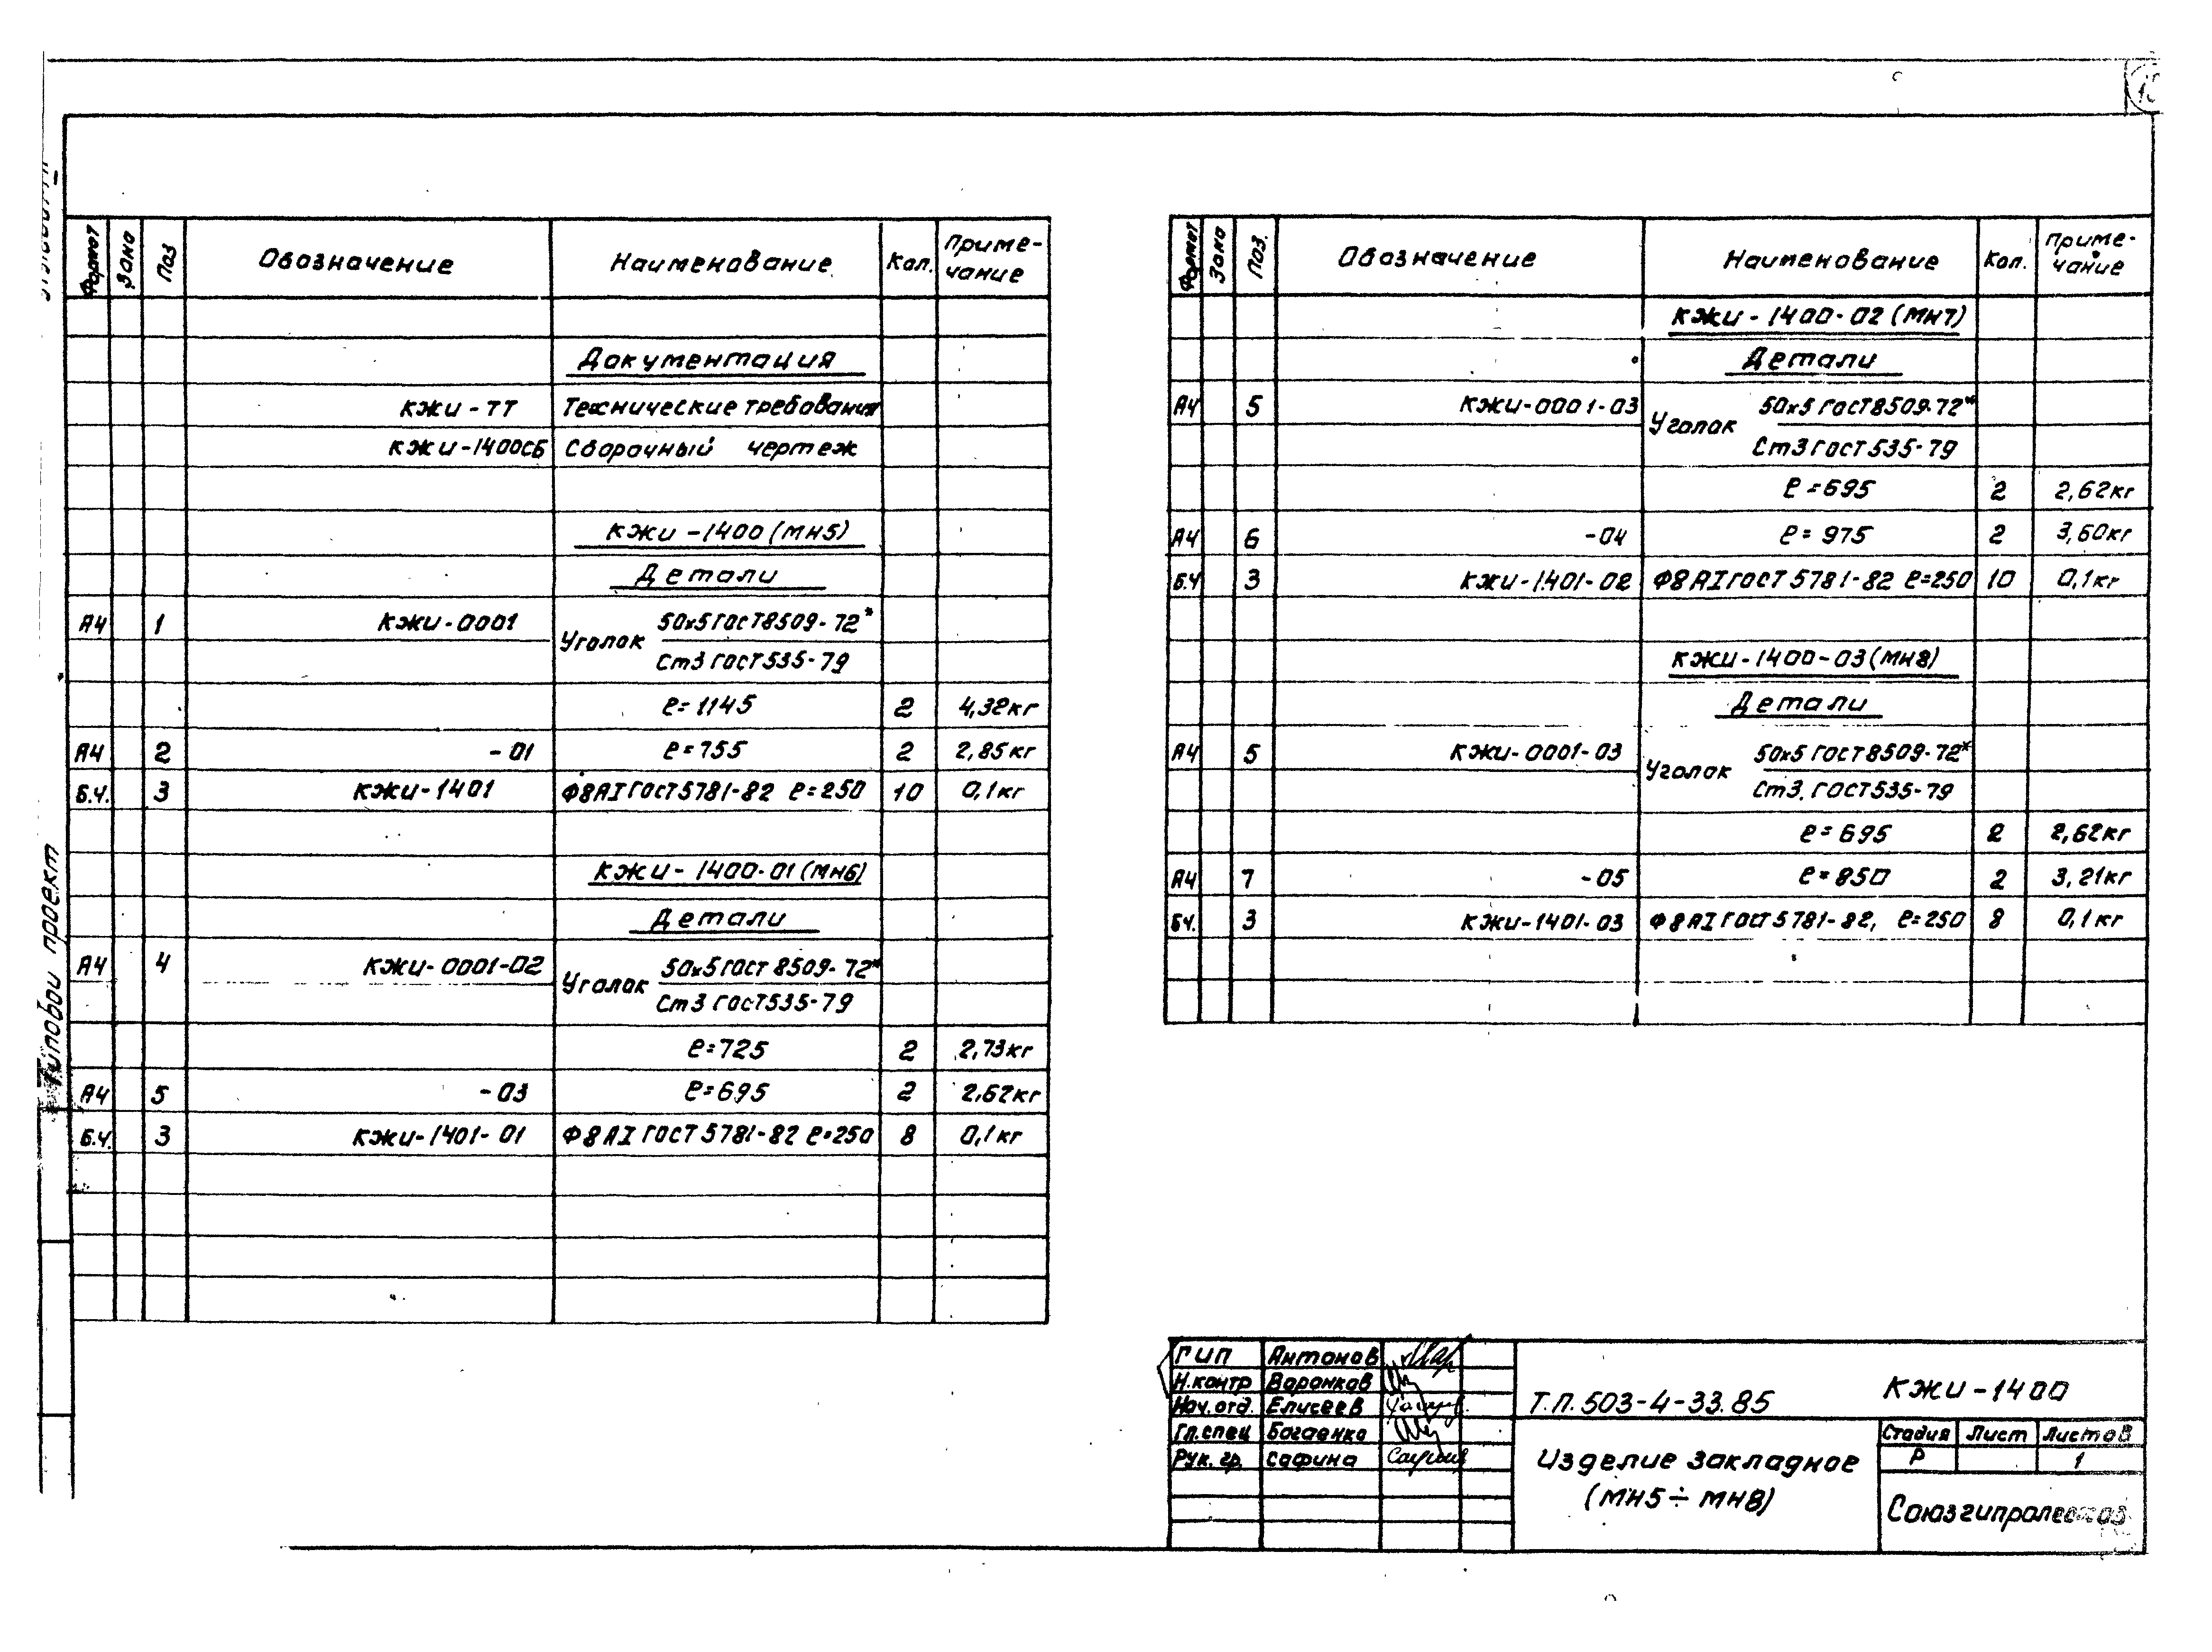 Типовой проект
Формат Зона Поз Обозначение Наименование Кол. Приме-
чание
Документация
КЖИ-ТТ Технические требования
КЖИ-1400СБ Сборочный чертеж
КЖИ-1400 (МН5)
Детали
А4 1 КЖИ-0001 Уголок 50х5 ГОСТ 8509-72*
Ст3 ГОСТ 535-79
ℓ=1145 2 4,32кг
А4 2 -01 ℓ=755 2 2,85кг
Б.Ч. 3 КЖИ-1401 Ф8АI ГОСТ 5781-82 ℓ=250 10 0,1кг
КЖИ-1400-01 (МН6)
Детали
А4 4 КЖИ-0001-02 Уголок 50х5 ГОСТ 8509-72*
Ст3 ГОСТ 535-79
ℓ=725 2 2,73кг
А4 5 -03 ℓ=695 2 2,62кг
Б.Ч. 3 КЖИ-1401-01 Ф8АI ГОСТ 5781-82 ℓ=250 8 0,1кг
Формат Зона Поз. Обозначение Наименование Кол. Приме-
чание
КЖИ-1400-02 (МН7)
Детали
А4 5 КЖИ-0001-03 Уголок 50х5 ГОСТ 8509-72*
Ст3 ГОСТ 535-79
ℓ=695 2 2,62кг
А4 6 -04 ℓ=975 2 3,60кг
Б.Ч 3 КЖИ-1401-02 Ф8АI ГОСТ 5781-82 ℓ=250 10 0,1кг
КЖИ-1400-03 (МН8)
Детали
А4 5 КЖИ-0001-03 Уголок 50х5 ГОСТ 8509-72*
Ст3. ГОСТ 535-79
ℓ=695 2 2,62кг
А4 7 -05 ℓ=850 2 3,21кг
БЧ. 3 КЖИ-1401-03 Ф8АI ГОСТ 5781-82, ℓ=250 8 0,1кг
ГИП Антонов
Н.контр Воронков
Нач.отд. Елисеев
Гл.спец Богаенко
Рук. гр. Сафина
Т.П. 503-4-33.85 КЖИ-1400
Изделие закладное
(МН5÷МН8)
Стадия Лист Листов
Р 1
Союзгипролесхоз